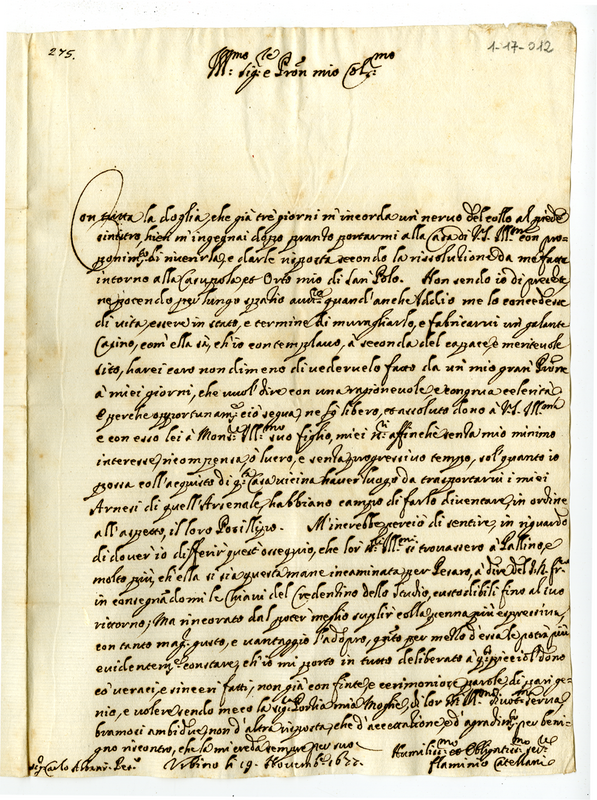 275.
1-17-012
Ill:mo Sig:re e Pron mio Col:mo
Con tutta la doglia, che già trè giorni m'incorda un nervo del collo al piede
sinistro, hieri m'ingegnai dopo pranzo portarmi alla Casa di V.S. Ill:ma con pro-
ponim:to di riverirla, e darle risposta secondo la rissolutione da me fatta
intorno alla Casupola, et Orto mio di San Polo. Non sendo io di presente
ne potendo per lungo spatio quand'anche Iddio me lo concedesse
di vita essere in stato, e termine di muragliarlo, e fabricarvi un galante
Casino, com'ella sà, ch'io contemplavo, à seconda del capace, e meritevole
sito, harei caro non dimeno di vedervelo fatto da un mio gran Prone
à miei giorni, che vuol dire con una ragionevole, e congrua celerità
e perche opportunam:te ciò segua, ne fò libero, et assoluto dono à V.S. Ill:ma
e con esso lei à Mons:re Ill:mo suo figlio, miei affinche senza mio minimo
interesse, ricompensa, ò lucro, e senza progressivo tempo, sol quanto io
possa coll'acquisto di Casa vicina haver luogo da trasportarvi i miei
Arnesi di quell'Arsenale, habbiano campo di farlo diventare, in ordine
all'aspetto, il loro Posillipo. M'increbbe perciò di sentire, in riguardo
di dover io differir quest'ossequio, che lor Ill:mi si trovassero à
molto più, ch'ella si sia questa mane incaminata per Pesaro, à dire del
in consegnandomi le Chiavi del Credentino dello Studio, custodibili fino al suo
ritorno; Ma rincorato dal poter meglio suplir colla penna più espressiva,
con tanto mag:r gusto, e vantaggio l'adopro, q:nto per mezzo d'essa le potrà più
evidentem:te constare, ch'io mi porto in tutto deliberato à picciol dono
co' veraci, e sinceri fatti, non già con finte, e cerimoniose parole di pari ge-
nio, e volere, sendo meco la Sig:ra Portia mia Moglie, di lor Ill:me divot: serva,
bramosi ambidue, non d'altra risposta, che d'accettatione, e d'agradim:to per beni-
gno riscontro, che la mi creda sempre per suo
Sig:r Carlo Albani Urbino li 19. Novemb:re 1677.
Humiliss:mo et Obligatiss:mo ser:re
Flaminio Catellani